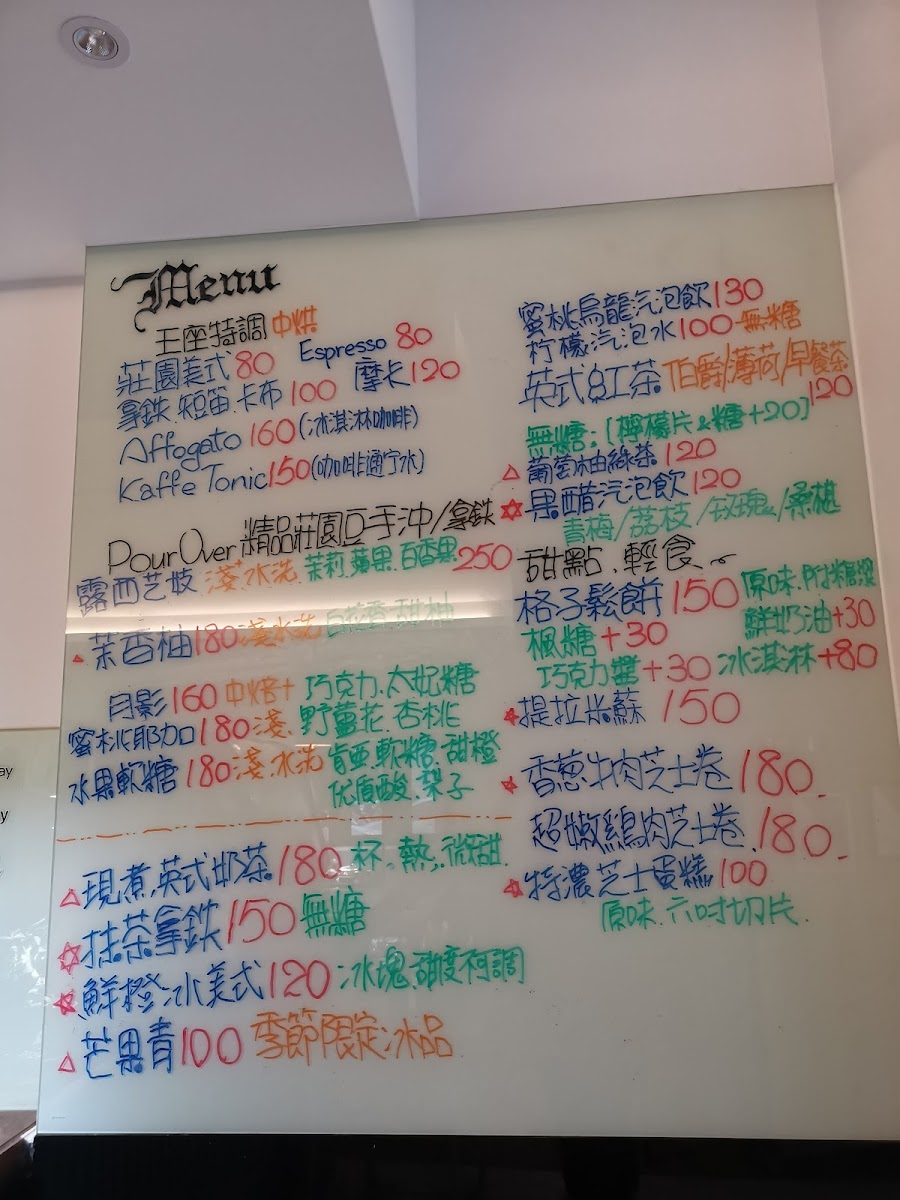 Menu
王座特調 中烘
莊園美式 80 Espresso 80
拿鉄.短笛.卡布 100 摩卡 120
Affogato 160 (冰淇淋咖啡)
Kaffe Tonic 150 (咖啡通宁水)
Pour Over 精品莊園豆手沖/拿鉄
露西艺妓 淺+水洗 茉莉.蘋果.百香果 250
△ 茉香柚 180 淺水洗 白花香.甜柚
月影 160 中焙+ 巧克力.太妃糖
蜜桃耶加 180 淺. 野薑花.杏桃
水果軟糖 180 淺.水洗 肯亞.軟糖.甜橙
优質酸.梨子
△ 現煮.英式奶茶 180 杯.熱.微甜.
☆ 抹茶拿鉄 150 無糖
★ 鮮橙冰美式 120 冰塊.甜度可調
△ 芒果青 100 季節限定冰品
蜜桃烏龍汽泡飲 130
柠檬汽泡水 100 無糖
英式紅茶 伯爵/薄荷/早餐茶
120
無糖:[檸檬片&糖+20]
△ 葡萄柚綠茶 120
☆ 果醋汽泡飲 120
青梅/荔枝/玫瑰/桑椹
甜點.輕食~
格子鬆餅 150 原味.附糖漿
楓糖+30 鮮奶油+30
巧克力醬+30 冰淇淋+80
★ 提拉米蘇 150
★ 香蔥牛肉芝士卷 180.
超嫩鷄肉芝士卷.180.
★ 特濃芝士蛋糕 100
原味.六吋切片.
ay
y